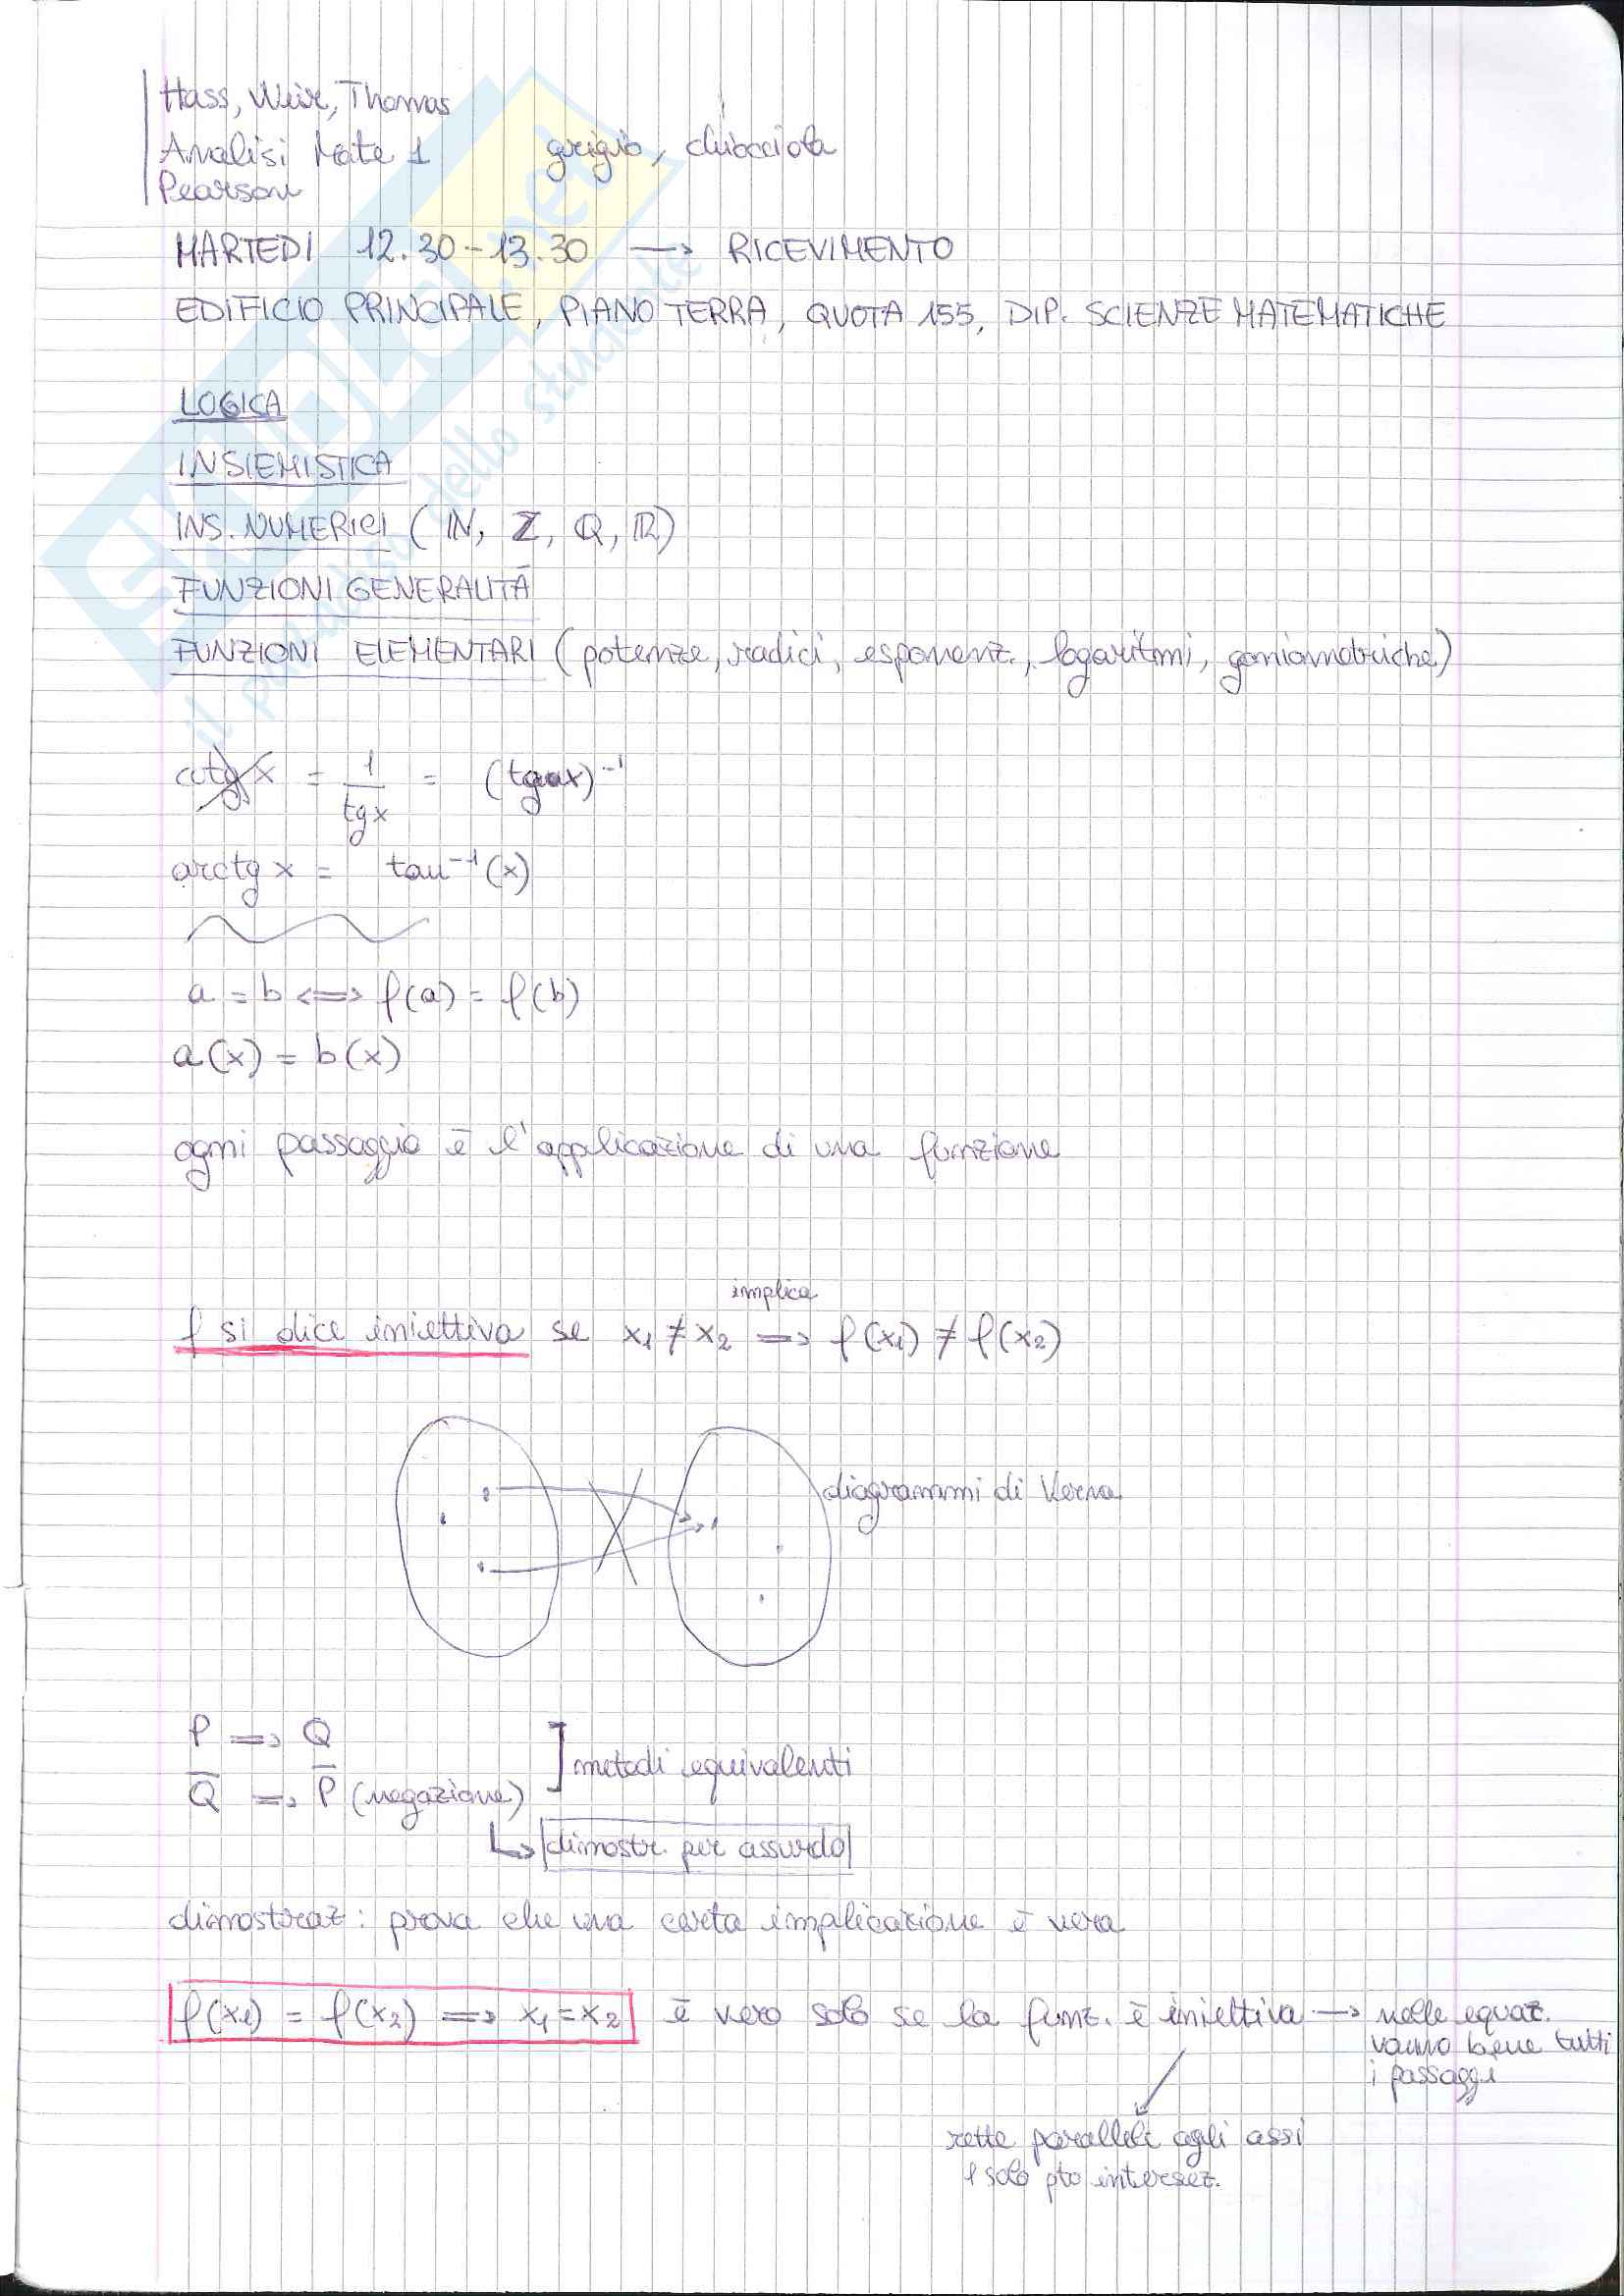 Hass, Weir, Thomas
Analisi Mate 1 grigio, chiocciola
Pearson
MARTEDÌ 12.30-13.30 → RICEVIMENTO
EDIFICIO PRINCIPALE, PIANO TERRA, QUOTA 155, DIP. SCIENZE MATEMATICHE
LOGICA
INSIEMISTICA
INS. NUMERICI (ℕ, ℤ, ℚ, ℝ)
FUNZIONI GENERALITÀ
FUNZIONI ELEMENTARI (potenze, radici, esponenz., logaritmi, goniometriche)
cotg x = 1/tg x = (tg x)⁻¹
arctg x = tan⁻¹(x)
a = b <=> f(a) = f(b)
a(x) = b(x)
ogni passaggio è l'applicazione di una funzione
implica
f si dice iniettiva se x₁ ≠ x₂ => f(x₁) ≠ f(x₂)
diagrammi di Venn
P => Q
Q̅ => P̅ (negazione)
] metodi equivalenti
↳ dimostr. per assurdo
dimostraz: prova che una certa implicazione è vera
f(x₁) = f(x₂) => x₁ = x₂ è vero solo se la funz. è iniettiva → nelle equaz.
vanno bene tutti
i passaggi
rette parallele agli assi
1 solo pto intersez.
EXULT.net
il paradiso dello studente